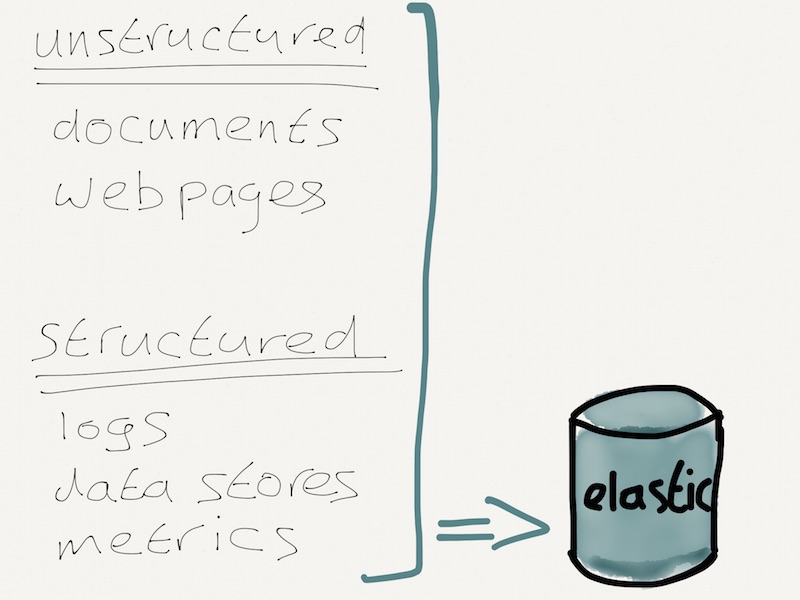 unstructured
documents
web pages
structured
logs
data stores
metrics
elastic